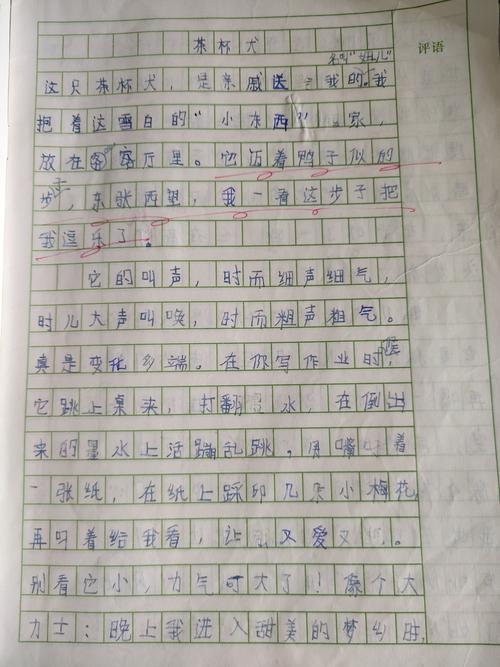 茶杯犬
评语
名叫"妞儿"
这只茶杯犬，是亲戚送给我的。我
抱着这雪白的"小东西"家，
放在客厅里。它迈着鸭子似的
步子，东张西望，我一看这步子把
我逗乐了。
它的叫声，时而细声细气，
时儿大声叫唤，时而粗声粗气。
真是变化多端。在你写作业时候，
它跳上桌来，打翻墨水，在倒出
来的墨水上活蹦乱跳，用嘴叼着
一张纸，在纸上踩印几朵小梅花，
再叼着给我看，让又爱又。
别看它小，力气可大了！像个大
力士：晚上我进入甜美的梦乡时，